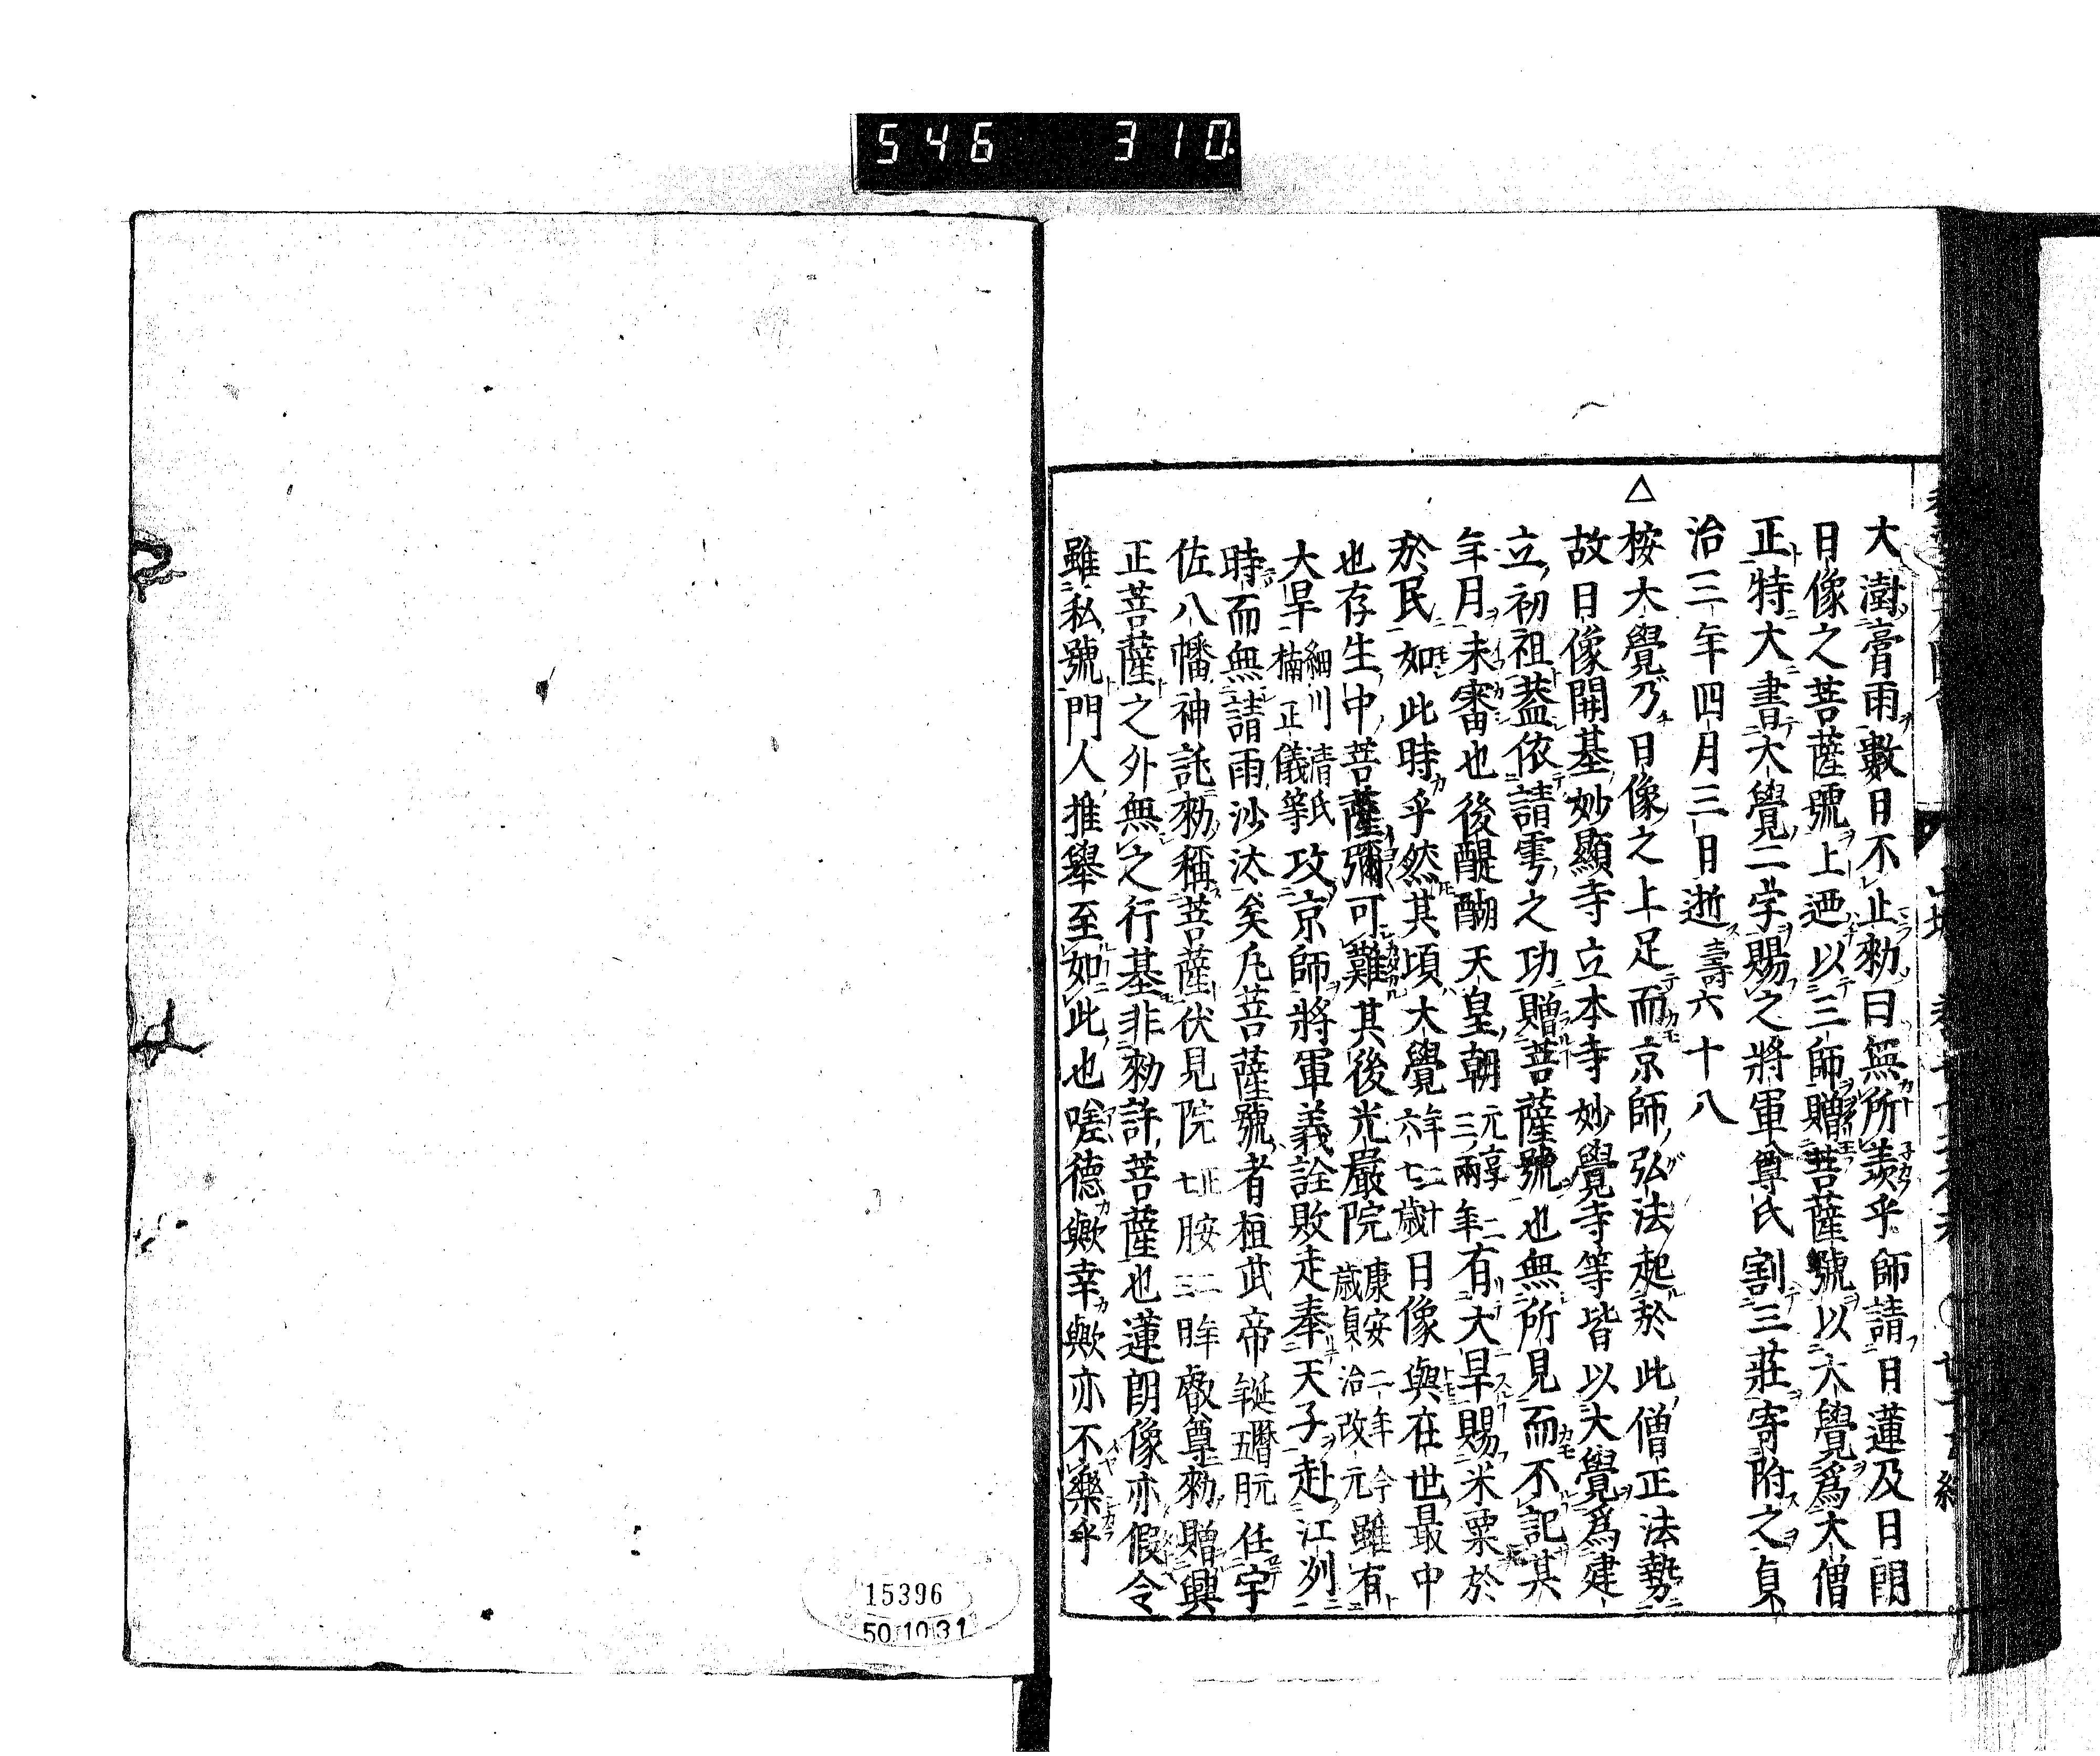 546 310
大澍膏雨數日不止勑曰無所羨乎師請日蓮及日朗
日像之菩薩號上迺以三師贈菩薩號以大覺爲大僧
正特大書大覺二字賜之將軍尊氏割三莊寄附之貞
治三年四月三日逝壽六十八
△按大覺乃日像之上足而京師弘法起於此僧正法勢
故日像開基妙顯寺立本寺妙覺寺等皆以大覺爲建
立初祖蓋依請雩之功贈菩薩號也無所見而不記其
年月未審也後醍醐天皇朝元享二三兩年有大旱賜米粟於
於民如此時乎然其頃大覺年二十六七歲日像與在世最中
也存生中菩薩彌可難其後光嚴院康安二年今歲貞治改元雖有
大旱細川清氏楠正儀等攻京師將軍義詮敗走奉天子赴江列
時而無請雨沙汰矣凡菩薩號者桓武帝延暦五年阮任宇
佐八幡神託勑稱菩薩伏見院正安二年七月三日叡尊勑贈興
正菩薩之外無之行基非勑許菩薩也蓮朗像亦假令
雖私號門人推舉至如此也嗟德歟幸歟亦不樂乎
15396
50.10.31